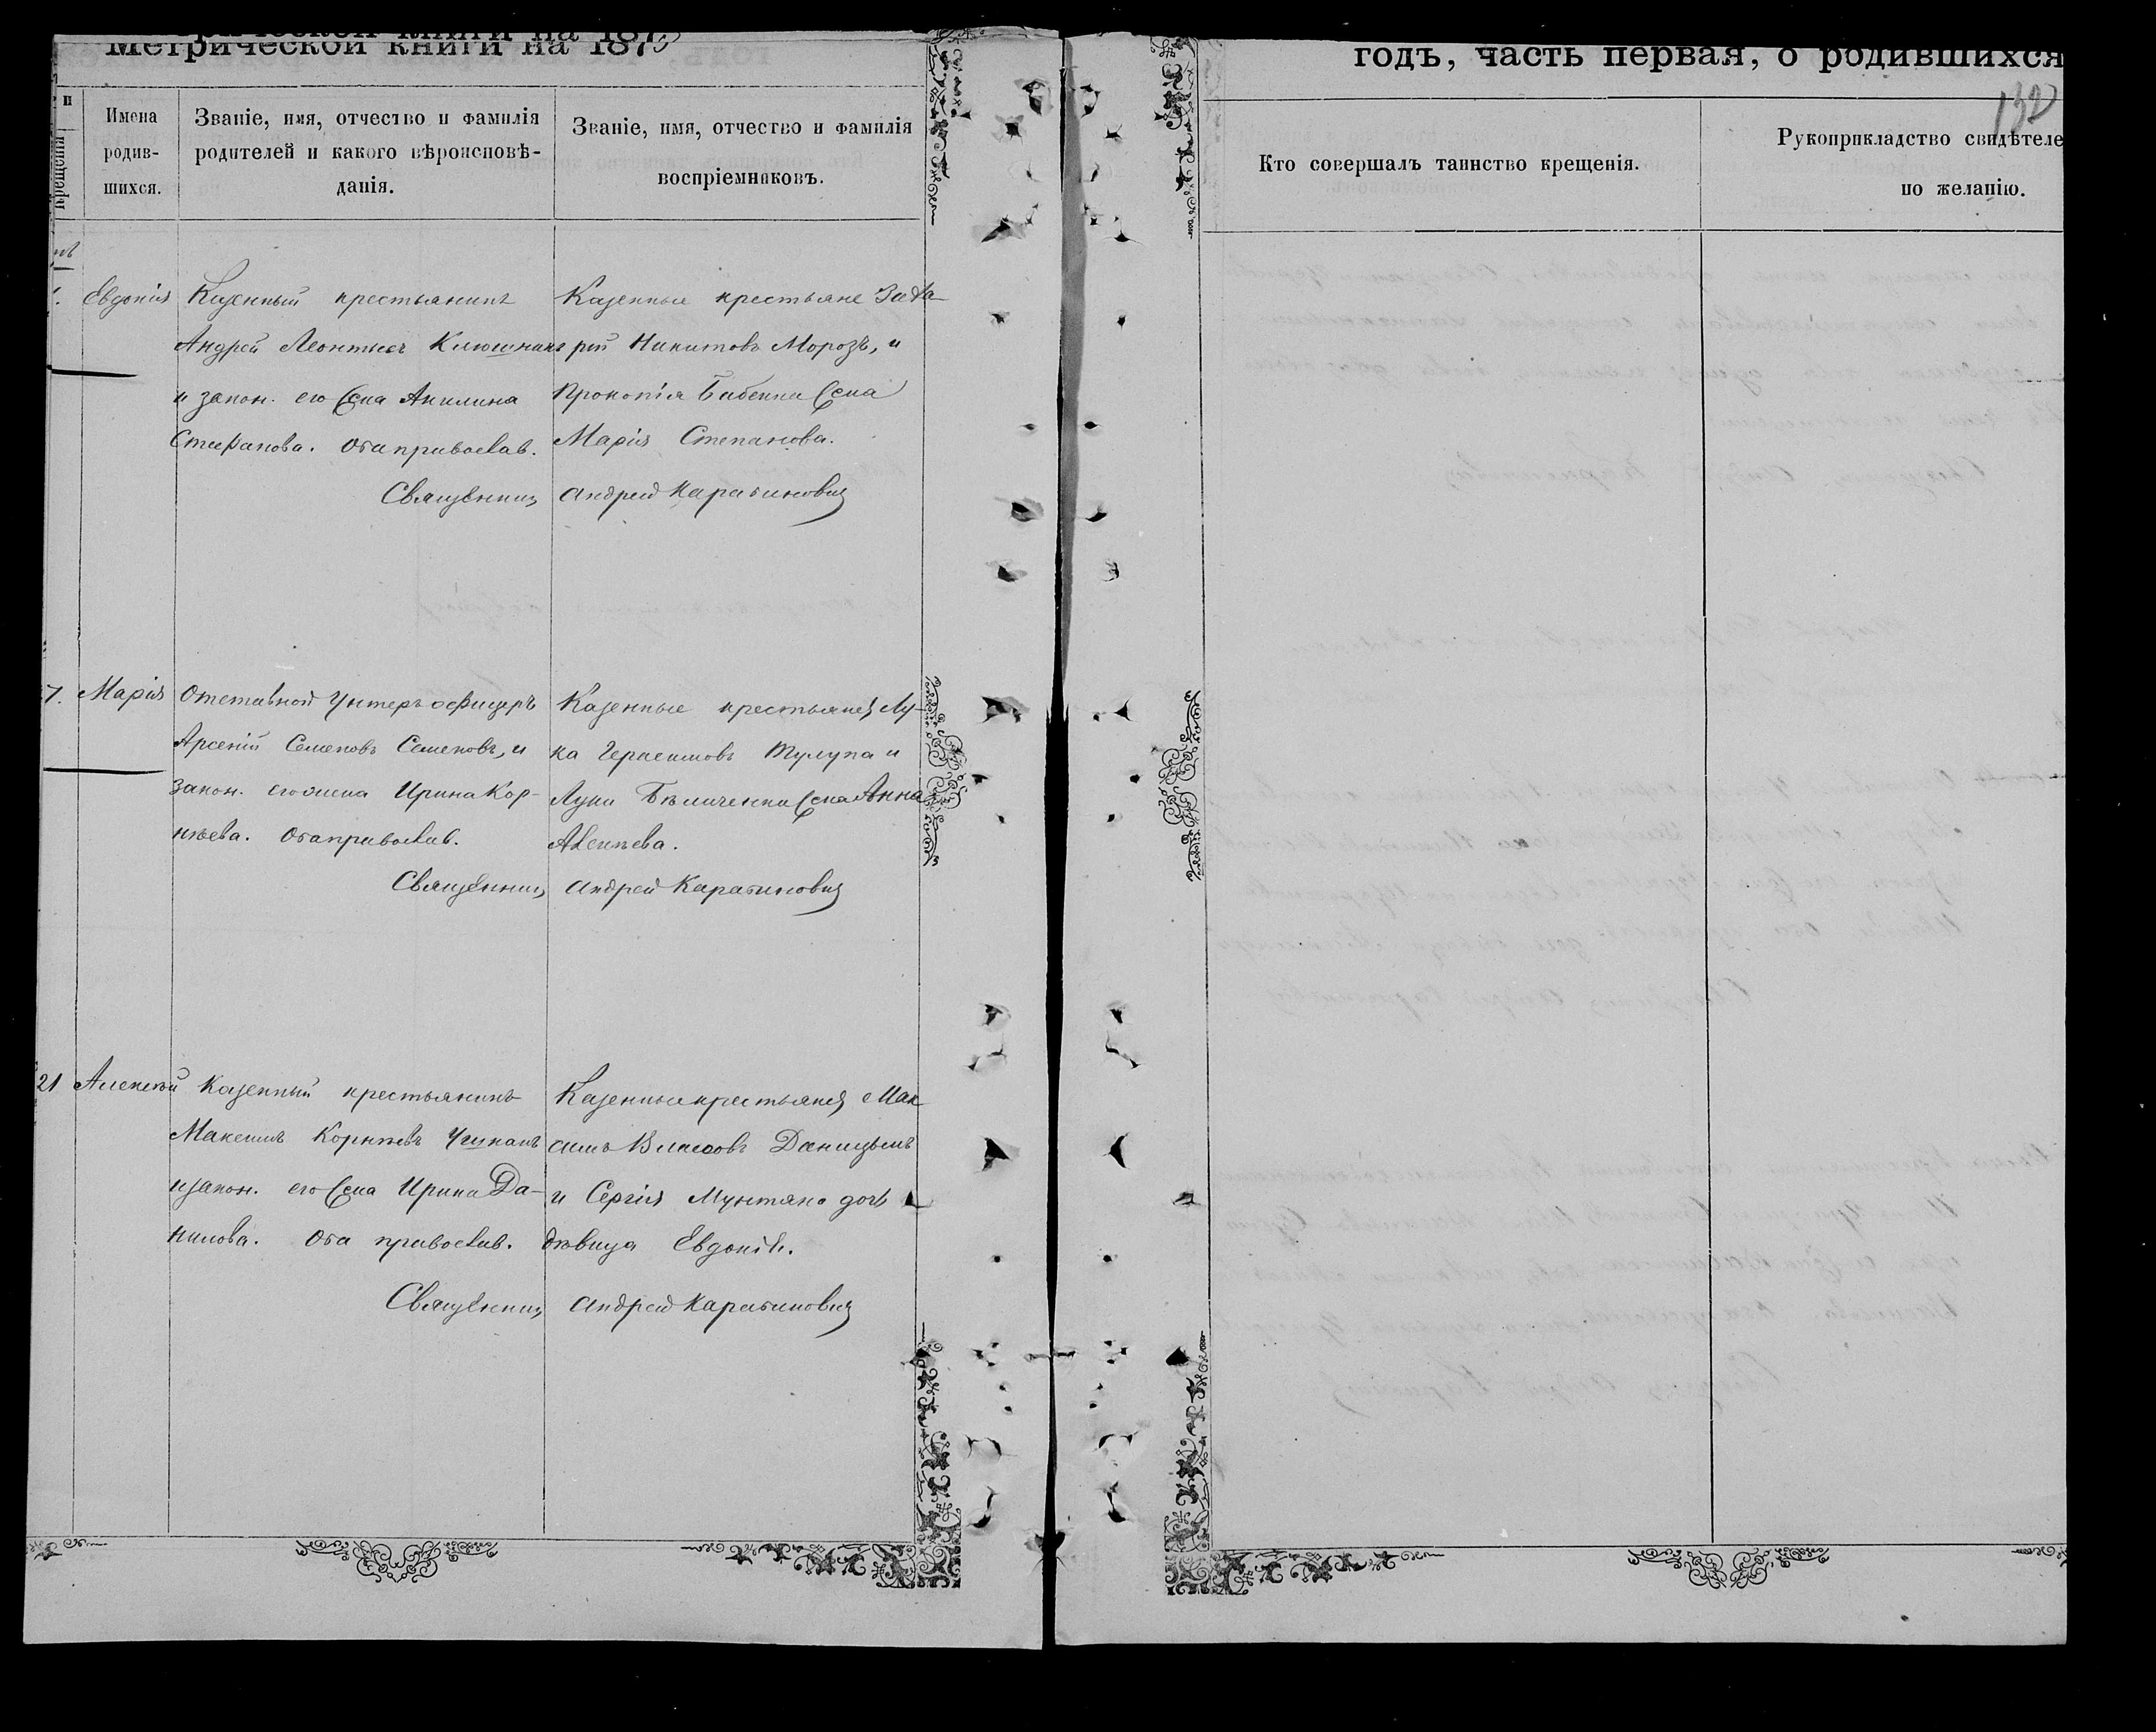 Метрической книги на 187
годъ, часть первая, о родившихся
132
и
крещенія
Имена
родив-
шихся.
Званіе, имя, отчество и фамилія
родителей и какого вѣроисповѣ-
данія.
Званіе, имя, отчество и фамилія
воспріемниковъ.
Кто совершалъ таинство крещенія.
Рукоприкладство свидѣтеле
по желанію.
Евдокія
Казенный крестьянинъ
Андрей Леонтьевъ
и закон. его жена Акилина
Стефанова. Оба православ.
Казенные крестьяне Заха-
рій Никитовъ Морозъ, и
Прокопія Бабенка жена
Марія Степанова.
Священникъ Андрей
7. Марія
Отставной Унтеръ офицеръ
Арсеній Семеновъ Семеновъ, и
закон. его жена Ирина Кор-
нѣева. Оба православ.
Казенные крестьяне Лу-
ка Герасимовъ Тулупа и
Луки жена Анна
Священникъ Андрей
21 Алексѣй
Казенный крестьянинъ
Максимъ Корнѣевъ
и закон. его жена Ирина Да-
нилова. Оба православ.
Казенные крестьяне Мак
симъ Власовъ
и Сергія Мунтяна дочь
дѣвица Евдокія.
Священникъ Андрей